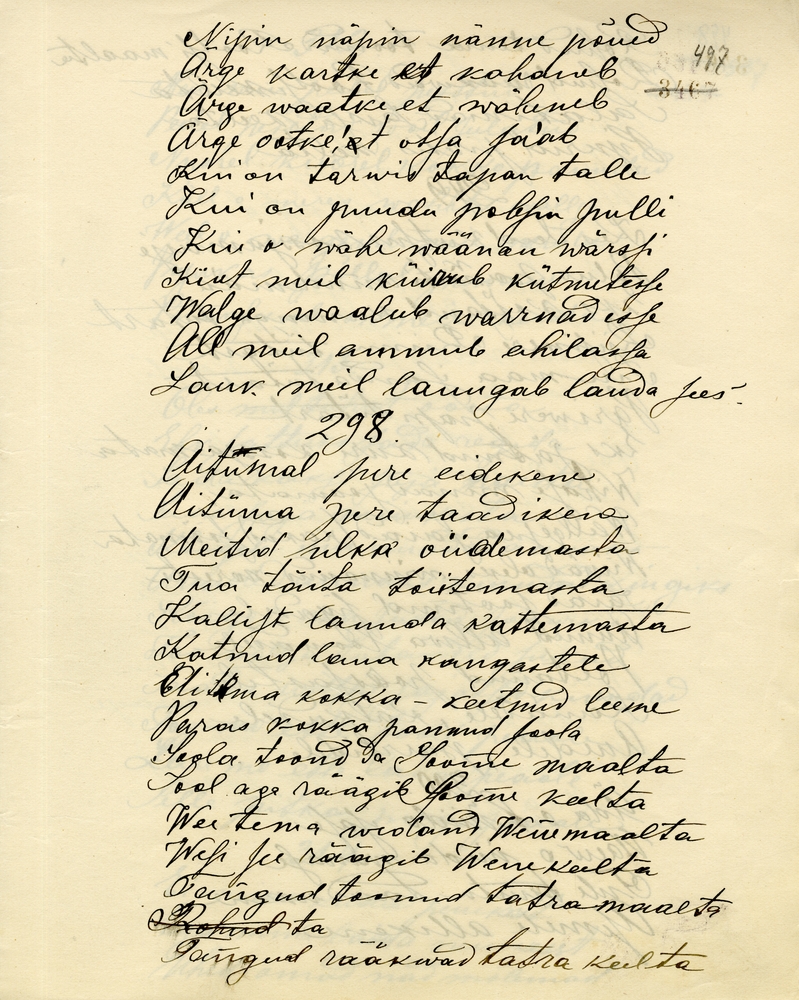 Nipin näpin nänne põued
497
Ärge kartke et kahaneb
3467
Ärge waatke et wäheneb
Ärge ootke, et otsa jääb
Kui on tarwis tapan talle
Kui on puudu poletsin pulli
Kui o wähe wäänan wärssi
Kiut meil küürub kütmetesse
Walge waalub warrnadesse
All meil ammub ahilassa
Lauk meil laungab lauda sees.
298.
Aitümal pere eidekene
Aitüma pere taadikene
Meitid ulka oidemasta
Tua täita toitemasta
Kallist lauuda kattemasta
Katnud laua kangastele
Aitüma kokka - keetnud leeme
Paras kokka pannud soola
Soola toond ta Soome maalta
Sool aga räägib Soome keelta
Wee tema wedand Wenemaalta
Wesi see räägib Wenekeelta
Tangud toonud tatramaalta
Rohud ta
Tangud rääkwad tatra keelta